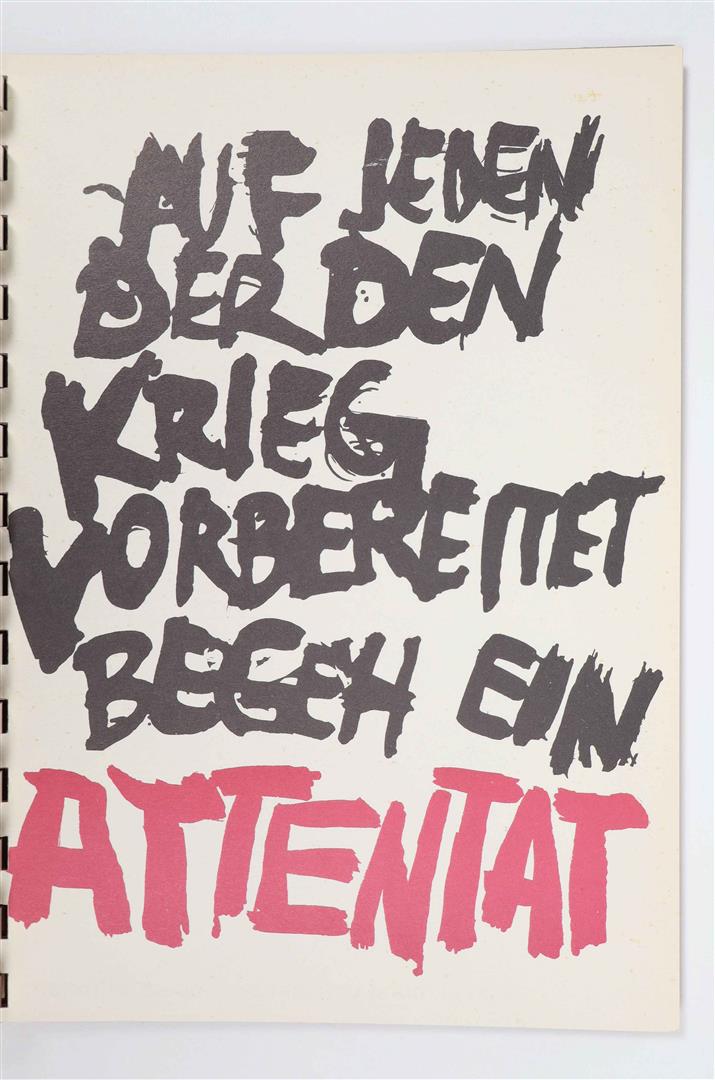 AUF JEDEN
DER DEN
KRIEG
VORBEREITET
BEGEH EIN
ATTENTAT